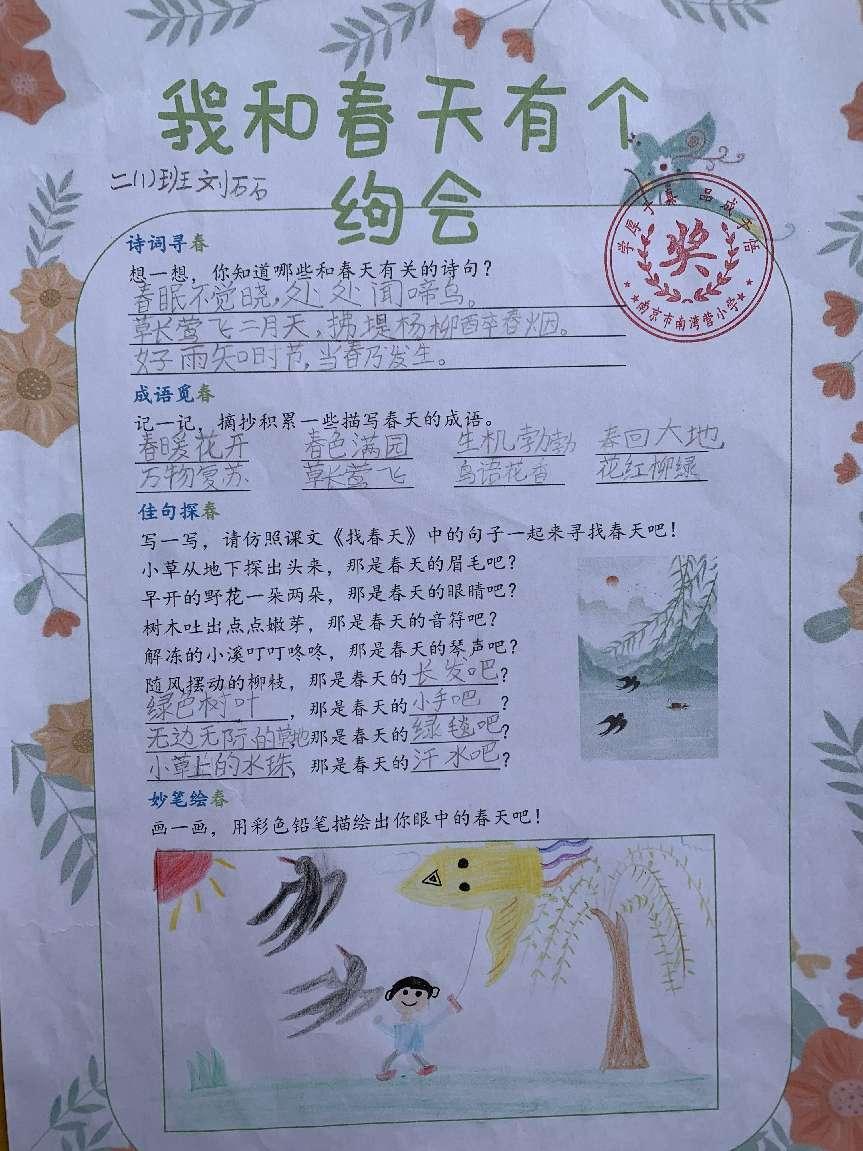 我和春天有个
绚会
二(1)班 刘石石
诗词寻春
想一想，你知道哪些和春天有关的诗句？
春眠不觉晓，处处闻啼鸟。
草长莺飞二月天，拂堤杨柳醉春烟。
好雨知时节，当春乃发生。
奖
南京市南湾营小学
成语觅春
记一记，摘抄积累一些描写春天的成语。
春暖花开 春色满园 生机勃勃 春回大地
万物复苏 草长莺飞 鸟语花香 花红柳绿
佳句探春
写一写，请仿照课文《找春天》中的句子一起来寻找春天吧！
小草从地下探出头来，那是春天的眉毛吧？
早开的野花一朵两朵，那是春天的眼睛吧？
树木吐出点点嫩芽，那是春天的音符吧？
解冻的小溪叮叮咚咚，那是春天的琴声吧？
随风摆动的柳枝，那是春天的长发吧？
绿色树叶，那是春天的小手吧？
无边无际的草地，那是春天的绿毯吧？
小草上的水珠，那是春天的汗水吧？
妙笔绘春
画一画，用彩色铅笔描绘出你眼中的春天吧！